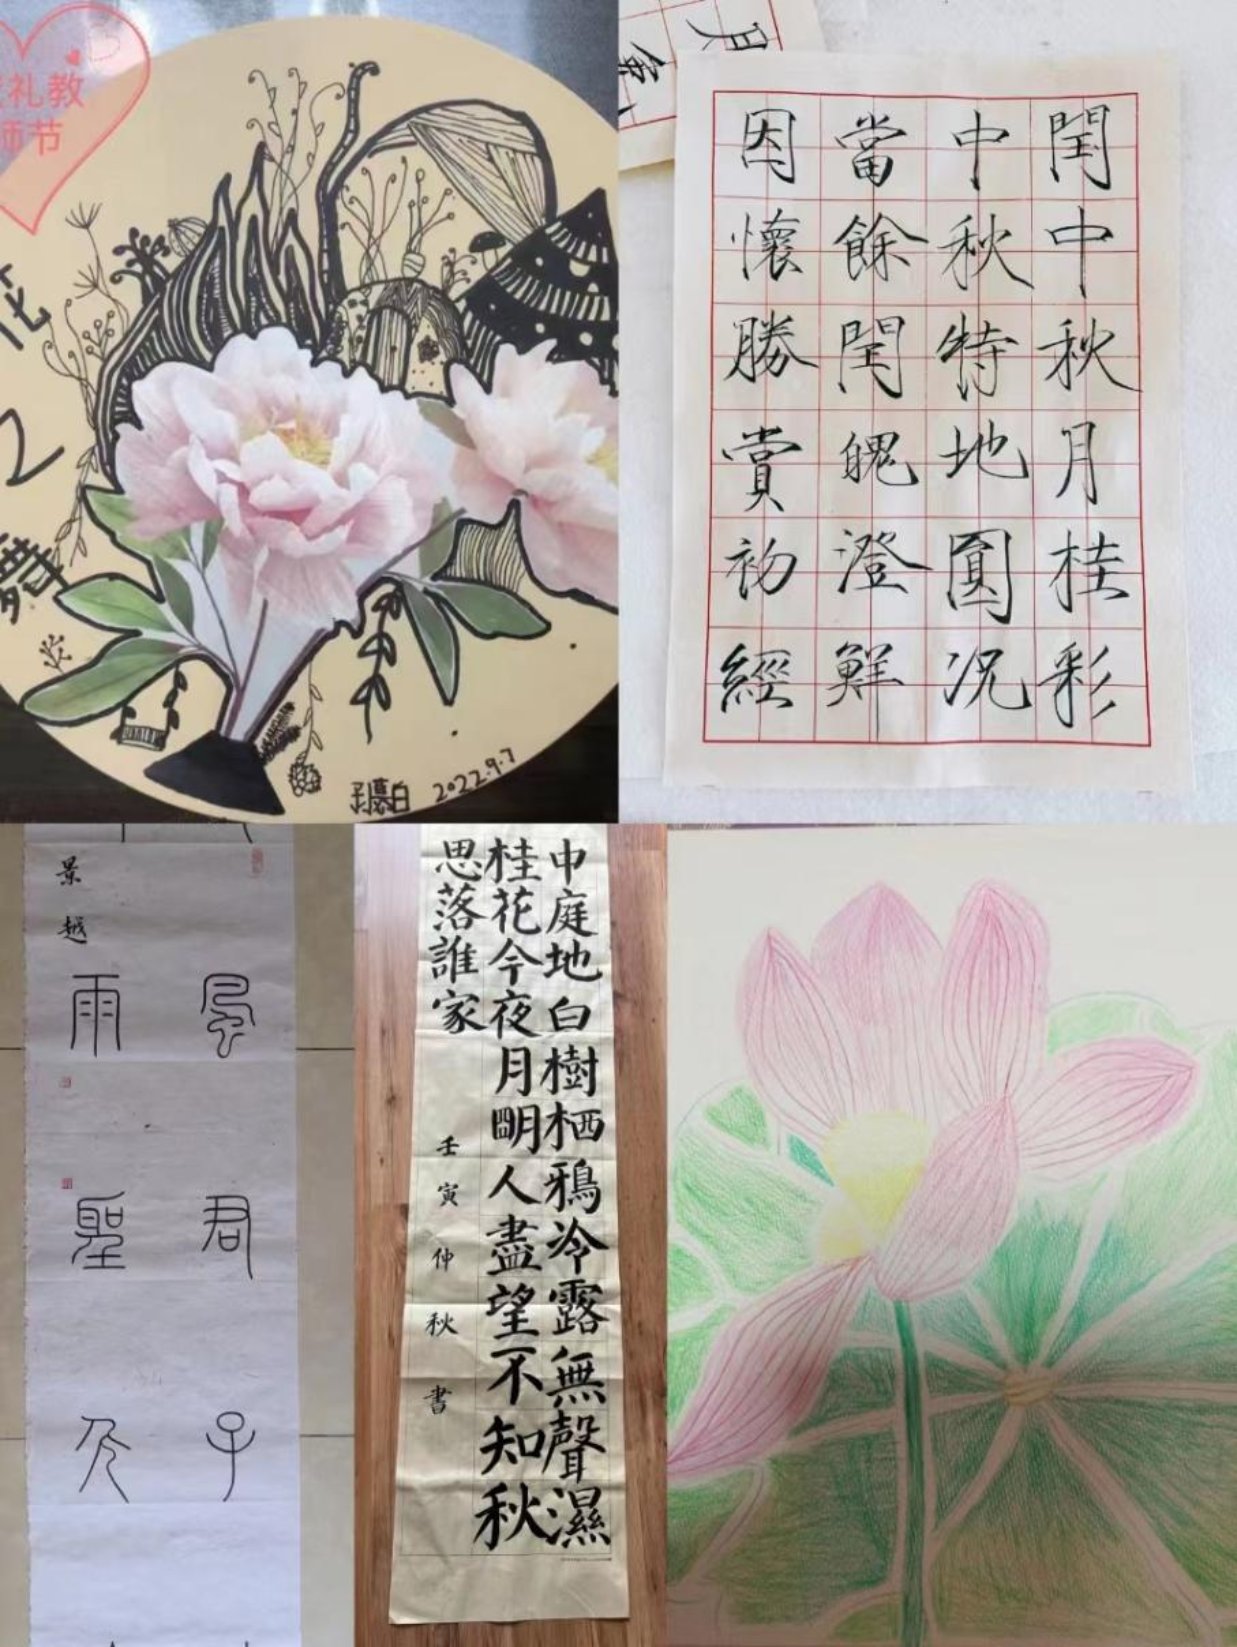 礼教
师节
花
之
舞
2022.9.7
閏中秋月桂彩
中秋特地圓况
當餘閏魄澄鮮
因懷勝賞初經
風君子
雨聖人
景越
中庭地白樹栖鴉冷露無聲濕
桂花今夜月明人盡望不知秋
思落誰家
壬寅仲秋書